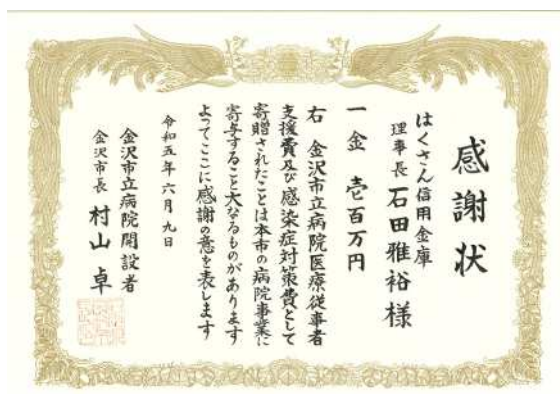 感謝状
はくさん信用金庫
理事長 石田雅裕様
一金 壱百万円
右 金沢市立病院医療従事者
支援費及び感染症対策費として
寄贈されたことは本市の病院事業に
寄与すること大なるものがあります
よってここに感謝の意を表します
令和五年六月九日
金沢市立病院開設者
金沢市長 村山卓